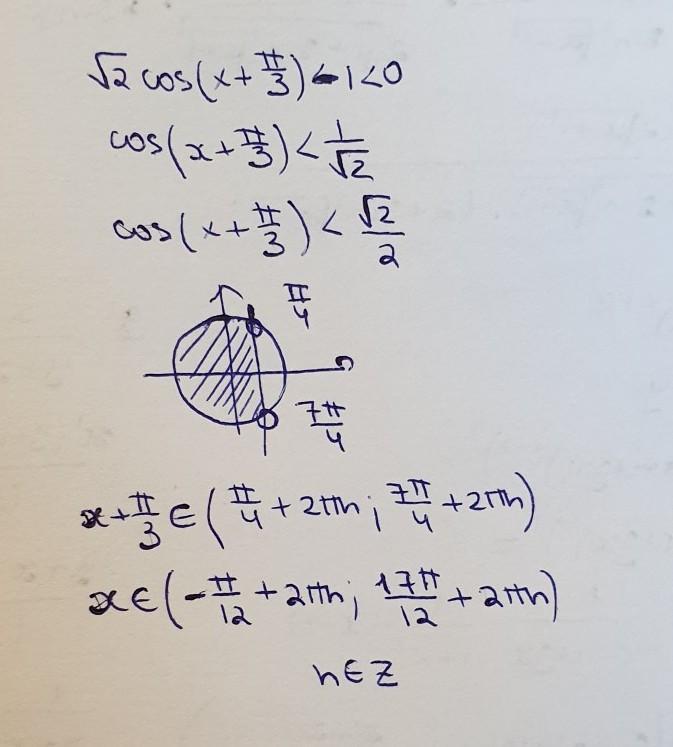 √2 cos(x+π/3)-1<0
cos(x+π/3)<1/√2
cos(x+π/3)<√2/2
π/4
7π/4
x+π/3∈(π/4+2πn; 7π/4+2πn)
x∈(-π/12+2πn; 17π/12+2πn)
n∈Z